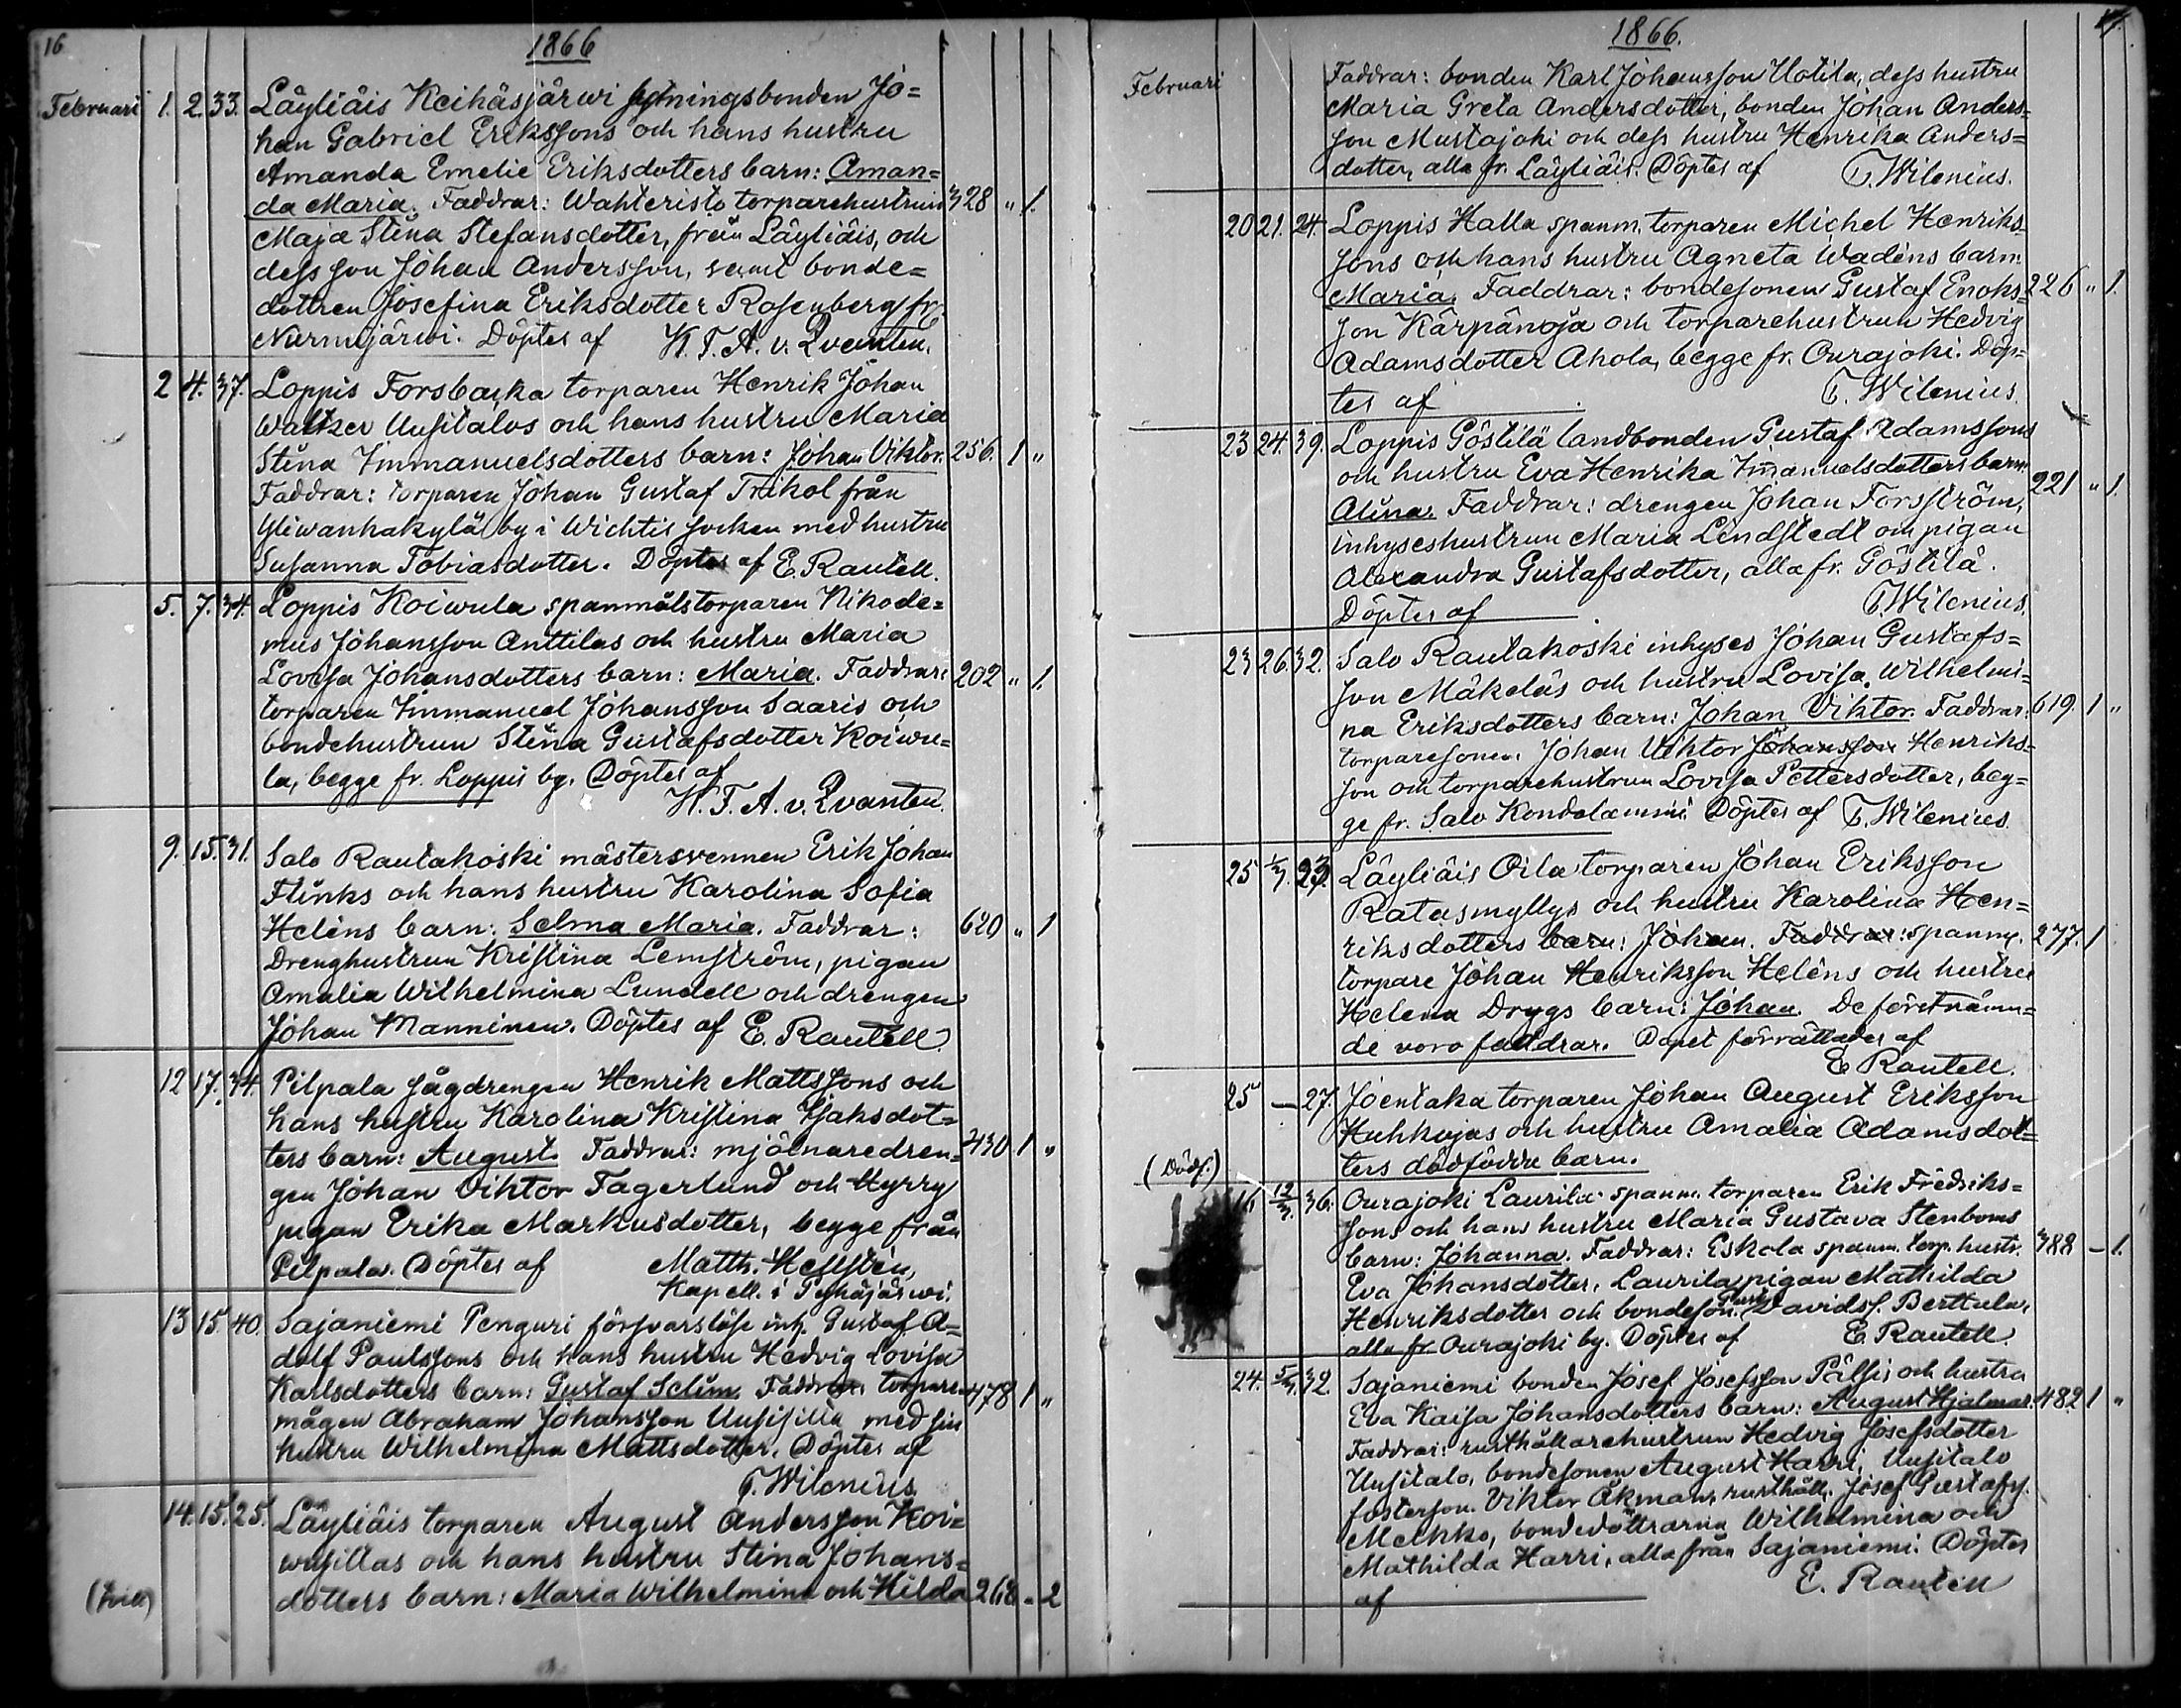 16
1866
Februari 1. 2. 33. Läyliäis Keihäsjärwi lytningsbonden Jo=
han Gabriel Erikssons och hans hustru
Amanda Emelie Eriksdotters barn: Aman=
da Maria. Faddrar: Wahteristo torparehustrun 328 " 1.
Maja Stina Stefansdotter, från Läyliäis, och
dess son Johan Andersson, samt bonde=
dottren Josefina Eriksdotter Rosenberg fr.
Nurmijärwi. Döptes af H. F. A. v. Qvanten.
2 4. 37. Loppis Forsbacka torparen Henrik Johan
Waltzer Uusitalos och hans hustru Maria
Stina Immanuelsdotters barn: Johan Viktor. 256. 1 "
Faddrar: torparen Johan Gustaf Trikol från
Yliwanhakylä by i Wichtis socken med hustru
Susanna Tobiasdotter. Döptes af E. Rautell.
5. 7. 34. Loppis Koiwula spanmålstorparen Nikode=
mus Johansson Anttilas och hustru Maria
Lovisa Johansdotters barn: Maria. Faddrar: 202 " 1.
torparen Immanuel Johansson Saaris och
bondehustrun Stina Gustafsdotter Koiwu=
la, begge fr. Loppis by. Döptes af
H. F. A. v. Qvanten.
9. 15. 31. Salo Rautakoski mästersvennen Erik Johan
Flinks och hans hustru Karolina Sofia
Heléns barn: Selma Maria. Faddrar: 620 " 1
Drenghustrun Kristina Lemström, pigan
Amalia Wilhelmina Lundell och drengen
Johan Manninen. Döptes af E. Rautell.
12 17. 34. Pilpala sågdrengen Henrik Mattssons och
hans hustru Karolina Kristina Isaksdot=
ters barn: August. Faddrar: mjölnaredren= 430 1 "
gen Johan Viktor Fagerlund och Myrry
pigan Erika Markusdotter, begge från
Pilpala. Döptes af Matth. Hellstén,
Kapell. i Pyhäjärwi.
13 15. 40. Sajaniemi Penguri försvarslöse inh. Gustaf A=
dolf Paulssons och hans hustru Hedvig Lovisa
Karlsdotters barn: Gustaf Selim. Faddrar: torpare 478 1 "
mågen Abraham Johansson Uusisilta med sin
hustru Wilhelmina Mattsdotter. Döptes af
T. Wilenius.
14. 15. 25. Läyliäis torparen August Andersson Koi=
wusillas och hans hustru Stina Johans=
(tvill) dotters barn: Maria Wilhelmina och Hilda 268 " 2
17.
1866.
Februari
Faddrar: bonden Karl Johansson Uotila, dess hustru
Maria Greta Andersdotter, bonden Johan Anders=
son Mustajoki och dess hustru Henrika Anders=
dotter, alla fr. Läyliäis. Döptes af T. Wilenius.
20 21. 24. Loppis Halla spanm. torparen Michel Henriks=
sons och hans hustru Agneta Wadéns barn:
Maria. Faddrar: bondesonen Gustaf Enoks= 226 " 1.
son Kärpänoja och torparehustrun Hedvig
Adamsdotter Ahola, begge fr. Ourajoki. Döp=
tes af T. Wilenius.
23 24. 39. Loppis Göstilä landbonden Gustaf Adamssons
och hustru Eva Henrika Immanuelsdotters barn: 221 " 1.
Alina. Faddrar: drengen Johan Forsström,
inhyseshustrun Maria Lindstedt och pigan
Alexandra Gustafsdotter, alla fr. Göstilä.
Döptes af T. Wilenius.
23 26. 32. Salo Rautakoski inhyses Johan Gustafs=
son Mäkeläs och hustru Lovisa Wilhelmi=
na Eriksdotters barn: Johan Viktor. Faddrar: 619. 1 "
torparesonen Johan Viktor Johansson Henriks=
son och torparehustrun Lovisa Pettersdotter, beg=
ge fr. Salo Kondolammi. Döptes af T. Wilenius.
25 1/3. 23. Läyliäis Oila torparen Johan Eriksson
Ratasmyllys och hustru Karolina Hen=
riksdotters barn: Johan. Faddrar: spanm. 277. 1
torpare Johan Henriksson Heléns och hustru
Helena Drygs barn: Johan. De förstnämn=
de voro faddrar. Dopet förrättades af
E. Rautell.
25 — 27. Joentaka torparen Johan August Eriksson
Huhkojas och hustru Amalia Adamsdot=
(Dödf.) ters dödfödde barn.
16. 12/3. 36. Ourajoki Laurila spanm. torparen Erik Fredriks=
sons och hans hustru Maria Gustava Stenboms
barn: Johanna. Faddrar: Eskola spanm. torp. hustr. 388 — 1.
Eva Johansdotter, Laurila pigan Mathilda
Henriksdotter och bondeson. Gust. Davidss. Berttula,
alla fr. Ourajoki by. Döptes af E. Rautell.
24. 5/3. 32. Sajaniemi bonden Josef Josefsson Pälsis och hustru
Eva Kaisa Johansdotters barn: August Hjalmar. 482 1 "
Faddrar: rusthållarehustrun Hedvig Josefsdotter
Uusitalo, bondesonen August Harri, Uusitalo
fosterson. Viktor Åkman, rusthåll. Josef Gustafs.
Melkko, bondedöttrarna Wilhelmina och
Mathilda Harri, alla från Sajaniemi. Döptes
af E. Rautell